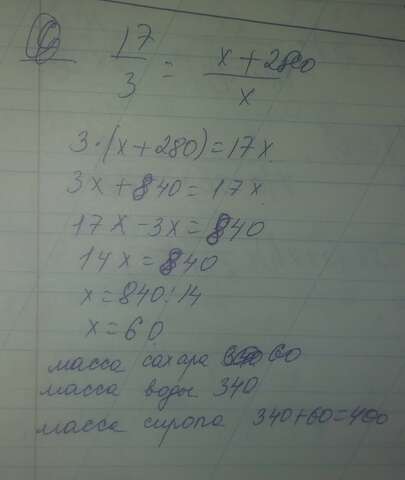 6 17/3 = x + 280/x
3·(x + 280) = 17x
3x + 840 = 17x
17x - 3x = 840
14x = 840
x = 840:14
x = 60
масса сахара 60
масса воды 340
масса сиропа 340+60=400